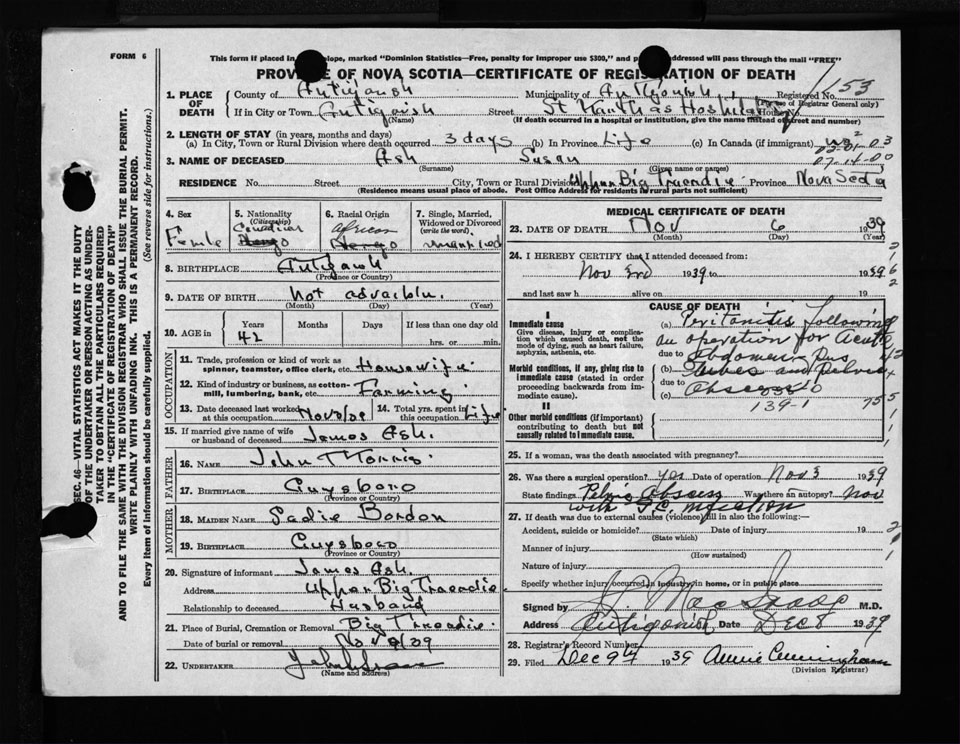 FORM 6
This form if placed in envelope, marked "Dominion Statistics—Free, penalty for improper use $300," and addressed will pass through the mail "FREE"
PROVINCE OF NOVA SCOTIA—CERTIFICATE OF REGISTRATION OF DEATH
153
1. PLACE OF DEATH County of Antigonish Municipality of Antigonish Registered No.
(For use of Registrar General only)
If in City or Town Antigonish Street St Marthas Hospital House No.
(Name) (If death occurred in a hospital or institution, give the name instead of street and number)
2. LENGTH OF STAY (in years, months and days)
(a) In City, Town or Rural Division where death occurred 3 days (b) In Province Life (c) In Canada (if immigrant)
07-14-00
3. NAME OF DECEASED Ash Susan
(Surname) (Given name or names)
RESIDENCE No. Street City, Town or Rural Division Upper Big Tracadie Province Nova Scotia
(Residence means usual place of abode. Post Office Address for residents in rural parts not sufficient)
4. Sex Female
5. Nationality (Citizenship) Canadian
6. Racial Origin African
7. Single, Married, Widowed or Divorced (write the word) Married
8. BIRTHPLACE Antigonish
(Province or Country)
9. DATE OF BIRTH not
(Month) (Day) (Year)
10. AGE in Years Months Days If less than one day old
42 hrs. or min.
OCCUPATION
11. Trade, profession or kind of work as spinner, teamster, office clerk, etc. Housewife
12. Kind of industry or business, as cotton-mill, lumbering, bank, etc. Farming
13. Date deceased last worked at this occupation 14. Total yrs. spent in this occupation Life
15. If married give name of wife or husband of deceased James Ash.
FATHER
16. NAME John Morris
17. BIRTHPLACE Guysboro
(Province or Country)
MOTHER
18. MAIDEN NAME Sadie Bordon
19. BIRTHPLACE Guysboro
(Province or Country)
20. Signature of informant James Ash.
Address Upper Big Tracadie.
Relationship to deceased Husband
21. Place of Burial, Cremation or Removal Big Tracadie.
Date of burial or removal Nov 8/39
22. UNDERTAKER
(Name and address)
MEDICAL CERTIFICATE OF DEATH
23. DATE OF DEATH Nov 6 1939
(Month) (Day) (Year)
24. I HEREBY CERTIFY that I attended deceased from:
Nov 3rd 1939 to 1939
and last saw h alive on 19
CAUSE OF DEATH
I
Immediate cause
Give disease, injury or complication which caused death, not the mode of dying, such as heart failure, asphyxia, asthenia, etc.
(a) Peritonitis following
an operation for Acute
due to Abdomen Pus
Morbid conditions, if any, giving rise to immediate cause (stated in order proceeding backwards from immediate cause).
(b) Tubes and Pelvic
due to
(c) Abscess
139-1
II
Other morbid conditions (if important) contributing to death but not causally related to immediate cause.
25. If a woman, was the death associated with pregnancy?
26. Was there a surgical operation? yes Date of operation Nov 3 1939
State findings Pelvic Abscess Was there an autopsy?
27. If death was due to external causes (violence) fill in also the following:—
Accident, suicide or homicide? Date of injury 19
(State which)
Manner of injury
(How sustained)
Nature of injury
Specify whether injury occurred in industry, in home, or in public place
Signed by M.D.
Address Antigonish Date Dec 8 1939
28. Registrar's Record Number
29. Filed Dec 9th 1939 Annie Cunningham
(Division Registrar)
SEC. 46—VITAL STATISTICS ACT MAKES IT THE DUTY
OF THE UNDERTAKER OR PERSON ACTING AS UNDER-
TAKER TO OBTAIN ALL THE PARTICULARS REQUIRED
IN THE "CERTIFICATE OF REGISTRATION OF DEATH"
AND TO FILE THE SAME WITH THE DIVISION REGISTRAR WHO SHALL ISSUE THE BURIAL PERMIT.
WRITE PLAINLY WITH UNFADING INK. THIS IS A PERMANENT RECORD.
Every item of information should be carefully supplied. (See reverse side for instructions.)